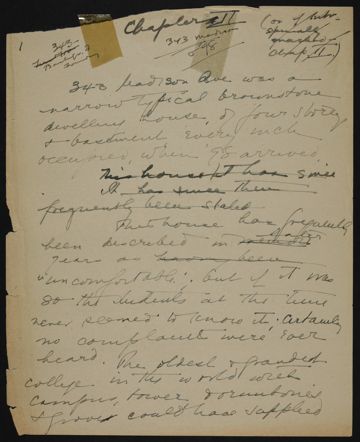 1
Chapter II
343
343 Madison
343 Madison Ave was a
narrow typical brownstone
dwelling house, of four storeys
& basement every inch
occupied, when 98 arrived.
This house it has since
It has since then
frequently been stated
The house has frequently
been described in later
years as having been
"uncomfortable", but if it was
so the students at the time
never seemed to know it, certainly
no complaints were ever
heard. The oldest & grandest
college in the world with
campus, tower, dormitories
& groves could have supplied